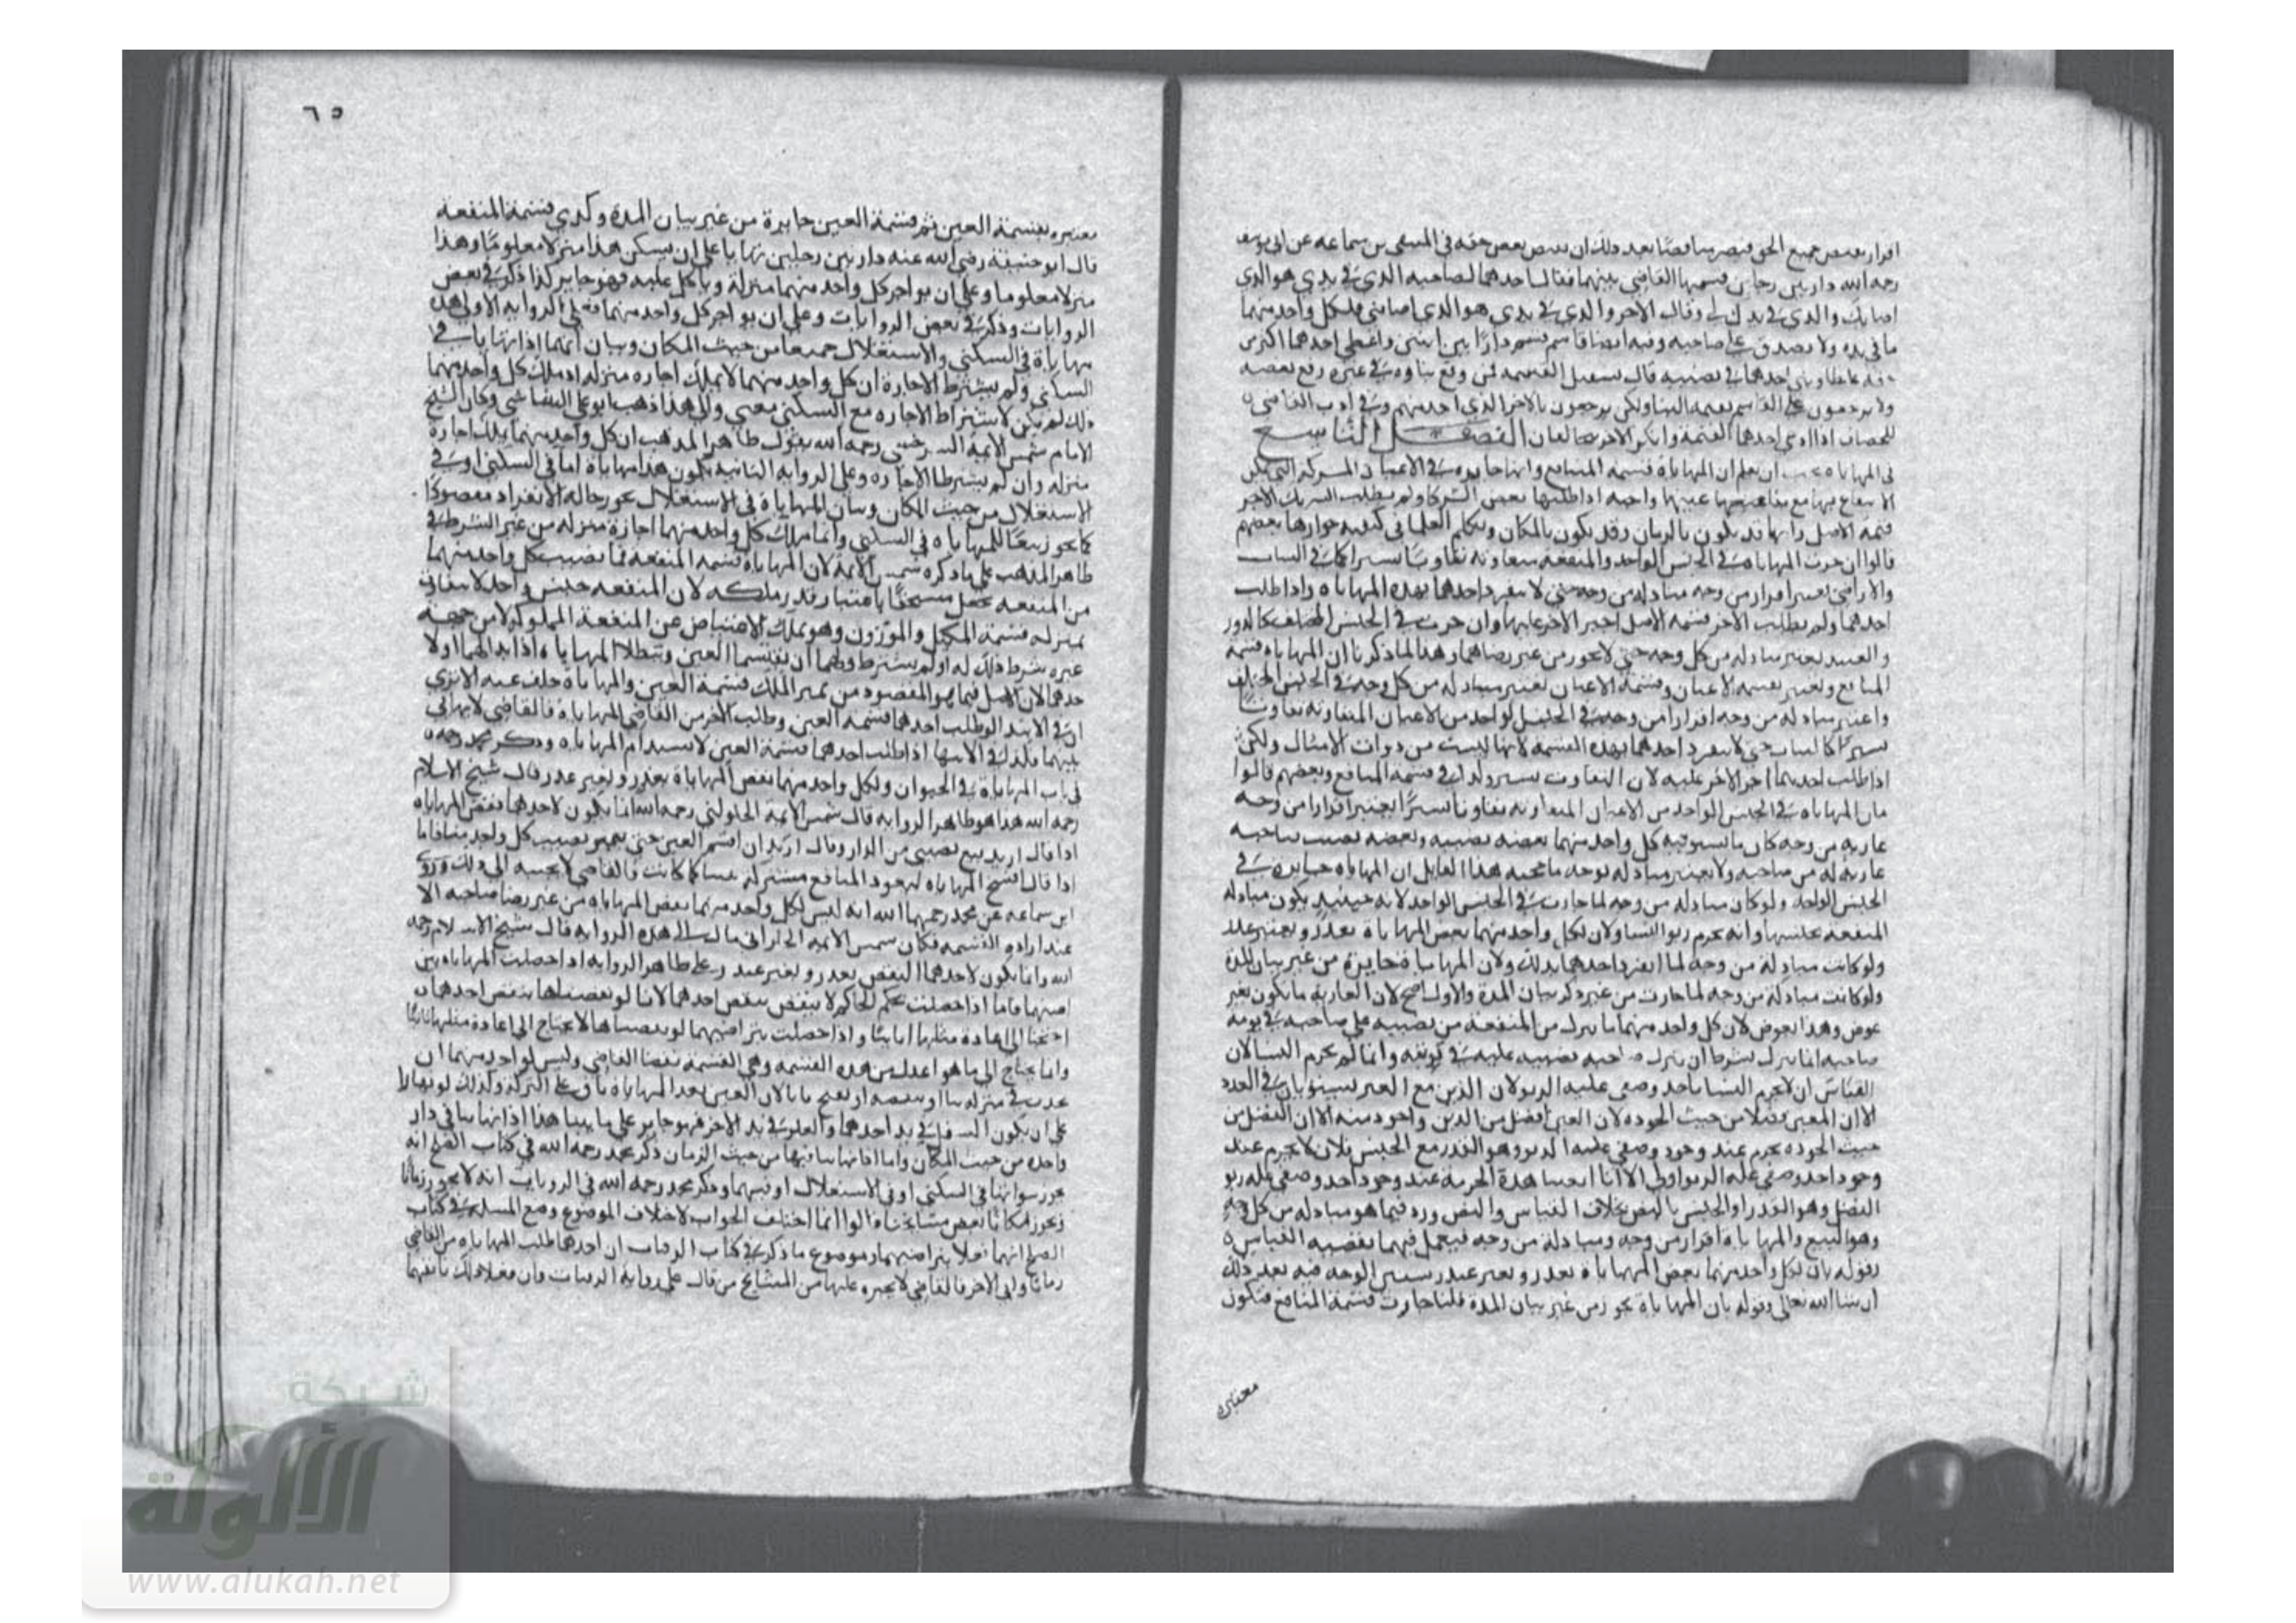 اقرار بقبض جميع الحق فيصير مناقضا بعد ذلك ان بعض حقه في المنتقى بن سماعه عن ابي يوسف
رحمه الله دار بين رجلين قسمها القاضي بينهما فقال احدهما لصاحبه الذي في يدي هو الذي
اصابك والذي في يدك لي وقال الاخر والذي في يدي هو الذي اصابني فلكل واحد منهما
ما في يده ولا يصدق على صاحبه وفيه ايضا قاسم قسم دارا بين اثنين واعطى احدهما اكثر من
احدهما في نصيبه قال يستقبل القسمة فمن وقع بناوه في غيره رفع نقضه
ولا يرجعون على القاسم بقيمة البنا ولكن يرجعون بالاخر الذي اخذ منهم وفي ادب القاضي
للخصاف اذا ادعى احدهما القسمة وانكر الاخر يتحالفان الفصل التاسع
في المهاياة يجب ان يعلم ان المهاياة قسمة المنافع وانها جايزة في الاعيان المشتركة التي يمكن
الانتفاع بها مع بقا عينها واجبه اذا طلبها بعض الشركا ولم يطلب الشريك الاخر
قسمة الاصل وانها قد يكون بالزمان وقد يكون بالمكان وتكلم العلما في كيفية جوازها بعضهم
قالوا ان جرت المهاياة في الجنس الواحد والمنفعة متفاوتة تفاوتا يسيرا كما في الثياب
والاراضي يعتبر افرازا من وجه مبادلة من وجه حتى لا ينفرد احدهما بهذه المهاياة واذا طلب
احدهما ولم يطلب الاخر قسمة الاصل اجبر الاخر عليها وان جرت في الجنس المختلف كالدور
والعبيد يعتبر مبادلة من كل وجه حتى لا يجوز من غير رضاهما وهذا لما ذكرنا ان المهاياة قسمة
المنافع وتعتبر بقسمة الاعيان وقسمة الاعيان تعتبر مبادلة من كل وجه في الجنس المختلف
واعتبر مبادلة من وجه افرازا من وجه في الجنس الواحد من الاعيان المتفاوتة تفاوتا
يسيرا كالثياب حتى لا ينفرد احدهما بهذه القسمة لانها ليست من ذوات الامثال ولكن
اذا طلب احدهما اجبر الاخر عليه لان التفاوت يسير ولذلك في قسمة المنافع وبعضهم قالوا
بان المهاياة في الجنس الواحد من الاعيان المتفاوتة تفاوتا يسيرا يعتبر افرازا من وجه
عارية من وجه كان ما يستوفيه كل واحد منهما بعضه نصيبه وبعضه نصيب صاحبه
عارية له من صاحبه ولا يعتبر مبادلة بوجه ما حجة هذا القايل ان المهاياة جايزة في
الجنس الواحد ولو كان مبادلة من وجه لما جازت في الجنس الواحد لانه حينئذ يكون مبادلة
المنفعة بجنسها وانه يحرم ربوا النسا ولان لكل واحد منهما نقض المهاياة بعذر وبغير عذر
ولو كانت مبادلة من وجه لما انفرد احدهما بذلك ولان المهاياة جايزة من غير بيان المدة
ولو كانت مبادلة من وجه لما جازت من غير ذكر بيان المدة والاول اصح لان العارية ما يكون بغير
عوض وهذا بعوض لان كل واحد منهما ما يترك من المنفعة من نصيبه على صاحبه في نوبة
صاحبه انما يترك بشرط ان يترك صاحبه نصيبه عليه في نوبته وانما لم يحرم النسا لان
القياس ان لا يحرم النسا باحد وصفي علة الربو لان الدين مع العين يستويان في العدد
الا ان المعين فضلا من حيث الجودة لان العين افضل من الدين واجود منه الا ان الفضل من
حيث الجودة يحرم عند وجود وصفي علة الربو وهو القدر مع الجنس فلان لا يحرم عند
وجود احد وصفي علة الربو اولى الا انا اثبتنا هذه الحرمة عند وجود احد وصفي علة ربو
الفضل وهو القدر او الجنس بالنص بخلاف القياس والنص ورد فيما هو مبادلة من كل وجه
وهو البيع والمهاياة افراز من وجه ومبادلة من وجه فيعمل فيهما بقضية القياس
وقوله بان لكل واحد منهما نقض المهاياة بعذر وبغير عذر سنبين الوجه فيه بعد ذلك
ان شا الله تعالى وقوله بان المهاياة تجوز من غير بيان المدة قلنا جازت قسمة المنافع فتكون
معتبرة
٦٥
معتبرة بقسمة العين ثم قسمة العين جايزة من غير بيان المدة وكذي قسمة المنفعة
قال ابو حنيفة رضي الله عنه دار بين رجلين تهايا على ان يسكن هذا منزلا معلوما وهذا
منزلا معلوما وعلى ان يواجر كل واحد منهما منزلة وياكل عليه فهو جايز كذا ذكر في بعض
الروايات وذكر في بعض الروايات وعلى ان يواجر كل واحد منهما فعلى الرواية الاولى هذه
مهاياة في السكنى والاستغلال جميعا من حيث المكان وبيان انهما اذا تهايا في
السكنى ولم يشترط الاجارة ان كل واحد منهما لا يملك اجارة منزله اذ ملك كل واحد منهما
ذلك لم يكن لاشتراط الاجارة مع السكنى معنى والى هذا ذهب ابو علي الشاشي وكان الشيخ
الامام شمس الايمة السرخسي رحمه الله يقول ظاهر المذهب ان كل واحد منهما يملك اجارة
منزله وان لم يشترطا الاجارة وعلى الرواية الثانية تكون هذا مهاياة اما في السكنى او في
الاستغلال من حيث المكان وبيان المهاياة في الاستغلال تجوز حالة الانفراد مقصودا
كما تجوز تبعا للمهاياة في السكنى وانما ملك كل واحد منهما اجارة منزله من غير الشرط في
ظاهر المذهب على ما ذكره شمس الايمة لان المهاياة قسمة المنفعة فما نصيب كل واحد منهما
من المنفعة يجعل مستحقا باعتبار قدر ملكه لان المنفعة جنس واحد لا تتفاوت
بمنزلة قسمة المكيل والموزون وهو يملك الاعتياض عن المنفعة المملوكة لا من جهة
غيره بشرط ذلك له او لم يشترط ولهما ان يقتسما العين وتبطلا المهاياة اذا بدا لهما او لا
حدهما لان الاصل فيما هو المقصود من تميز الملك قسمة العين والمهاياة خلف عنه الا ترى
ان في الابتدا لو طلب احدهما قسمة العين وطلب الاخر من القاضي المهاياة فالقاضي لا يهايي
بينهما فكذلك في الانتها اذا طلب احدهما قسمة العين لا يستدام المهاياة وذكر محمد رحمه
في باب المهاياة في الحيوان ولكل واحد منهما نقض المهاياة بعذر وبغير عذر قال شيخ الاسلام
رحمه الله هذا هو ظاهر الرواية قال شمس الايمة الحلواني رحمه الله انما يكون لاحدهما نقض المهاياة
اذا قال اريد بيع نصيبي من الدار وقال اريد ان اقسم العين حتى يتميز نصيب كل واحد منا فاما
اذا قال انسخ المهاياة ليعود المنافع مشتركة بيننا كما كانت فالقاضي لا يجيبه الى ذلك وروى
ابن سماعه عن محمد رحمهما الله انه ليس لكل واحد منهما نقض المهاياة من غير رضا صاحبه الا
عند ارادة القسمة فكان شمس الايمة الحلواني مال الى هذه الرواية قال شيخ الاسلام رحمه
الله وانما يكون لاحدهما النقض بعذر وبغير عذر على ظاهر الرواية اذا حصلت المهاياة بين
اضيهما فاما اذا حصلت بحكم الحاكم لا ينقض بنقض احدهما لانا لو نقضناها بنقض احدهما
احتجنا الى اعادة مثلها ثانيا واذا حصلت بتراضيهما لو نقضناها لا يحتاج الى اعادة مثلها ثانيا
وانما يحتاج الى ما هو اعدل من هذه القسمة وهي القسمة بقضا القاضي وليس لواحد منهما ان
يحدث في منزله بنا او ينقضه او يفتح بابا لان العين بعد المهاياة باق على الشركة وكذلك لو تهايا
على ان يكون السفل في يد احدهما والعلو في يد الاخر فهو جايز على ما بينا هذا اذا تهايا في دار
واحدة من حيث المكان واما اذا تهايا فيها من حيث الزمان ذكر محمد رحمه الله في كتاب الصلح انه
يجوز سوا تهايا في السكنى او في الاستغلال او فيهما وذكر محمد رحمه الله في الروايات انه لا يجوز زمانا
وتجوز مكانا بعض مشايخنا قالوا انما اختلف الجواب لاختلاف الموضوع وضع المسلة في كتاب
الصلح انهما فعلا بتراضيهما وموضوع ما ذكر في كتاب الرقيات ان احدهما طلب المهاياة من القاضي
زمانا وابى الاخر فالقاضي لا يجبره عليها من المشايخ من قال على رواية الرقيات وان فعلا ذلك بانفسهما
شبكة
الألولة
www.alukah.net